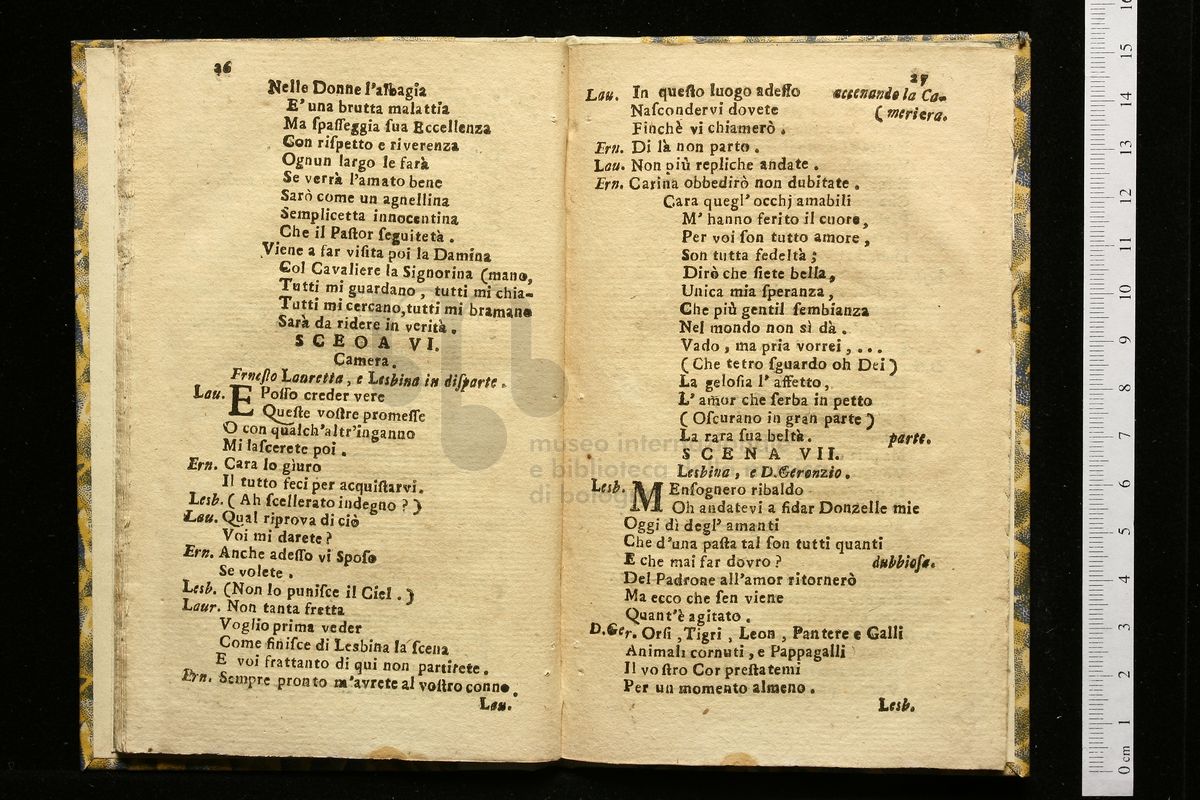 26
Nelle Donne l'albagia
E' una brutta malattia
Ma ſpaſſeggia ſua Eccellenza
Con riſpetto e riverenza
Ognun largo le farà
Se verrà l'amato bene
Sarò come un agnellina
Semplicetta innocentina
Che il Paſtor ſeguitetà.
Viene a far viſita poi la Damina
Col Cavaliere la Signorina (mano,
Tutti mi guardano, tutti mi chia-
Tutti mi cercano, tutti mi bramano
Sarà da ridere in verità.
SCEOA VI.
Camera.
Erneſto Lauretta, e Lesbina in diſparte.
Lau. E Poſſo creder vere
Queſte voſtre promeſſe
O con qualch'altr'inganno
Mi laſcerete poi.
Ern. Cara lo giuro
Il tutto feci per acquiſtarvi.
Lesb. (Ah ſcellerato indegno?)
Lau. Qual riprova di ciò
Voi mi darete?
Ern. Anche adeſſo vi Spoſo
Se volete.
Lesb. (Non lo puniſce il Ciel.)
Laur. Non tanta fretta
Voglio prima veder
Come finiſce di Lesbina la ſcena
E voi frattanto di qui non partirete.
Ern. Sempre pronto m'avrete al voſtro conno.
Lau.
27
Lau. In queſto luogo adeſſo accenando la Ca-
Naſcondervi dovete (meriera.
Finchè vi chiamerò.
Ern. Di là non parto.
Lau. Non più repliche andate.
Ern. Carina obbedirò non dubitate.
Cara quegl' occhj amabili
M' hanno ferito il cuore,
Per voi ſon tutto amore,
Son tutta fedeltà;
Dirò che ſiete bella,
Unica mia ſperanza,
Che più gentil ſembianza
Nel mondo non sì dà.
Vado, ma pria vorrei,...
(Che tetro ſguardo oh Dei)
La geloſia l' affetto,
L' amor che ſerba in petto
(Oſcurano in gran parte)
La rara ſua beltà. parte.
SCENA VII.
Lesbina, e D. Geronzio.
Lesb. MEnſognero ribaldo
Oh andatevi a fidar Donzelle mie
Oggi dì degl' amanti
Che d'una paſta tal ſon tutti quanti
E che mai far dovro? dubbioſa.
Del Padrone all'amor ritornerò
Ma ecco che ſen viene
Quant'è agitato.
D.Ger. Orſi, Tigri, Leon, Pantere e Galli
Animali cornuti, e Pappagalli
Il voſtro Cor preſtatemi
Per un momento almeno.
Lesb.
museo
e biblioteca
di bologna
0 cm 1 2 3 4 5 6 7 8 9 10 11 12 13 14 15 16